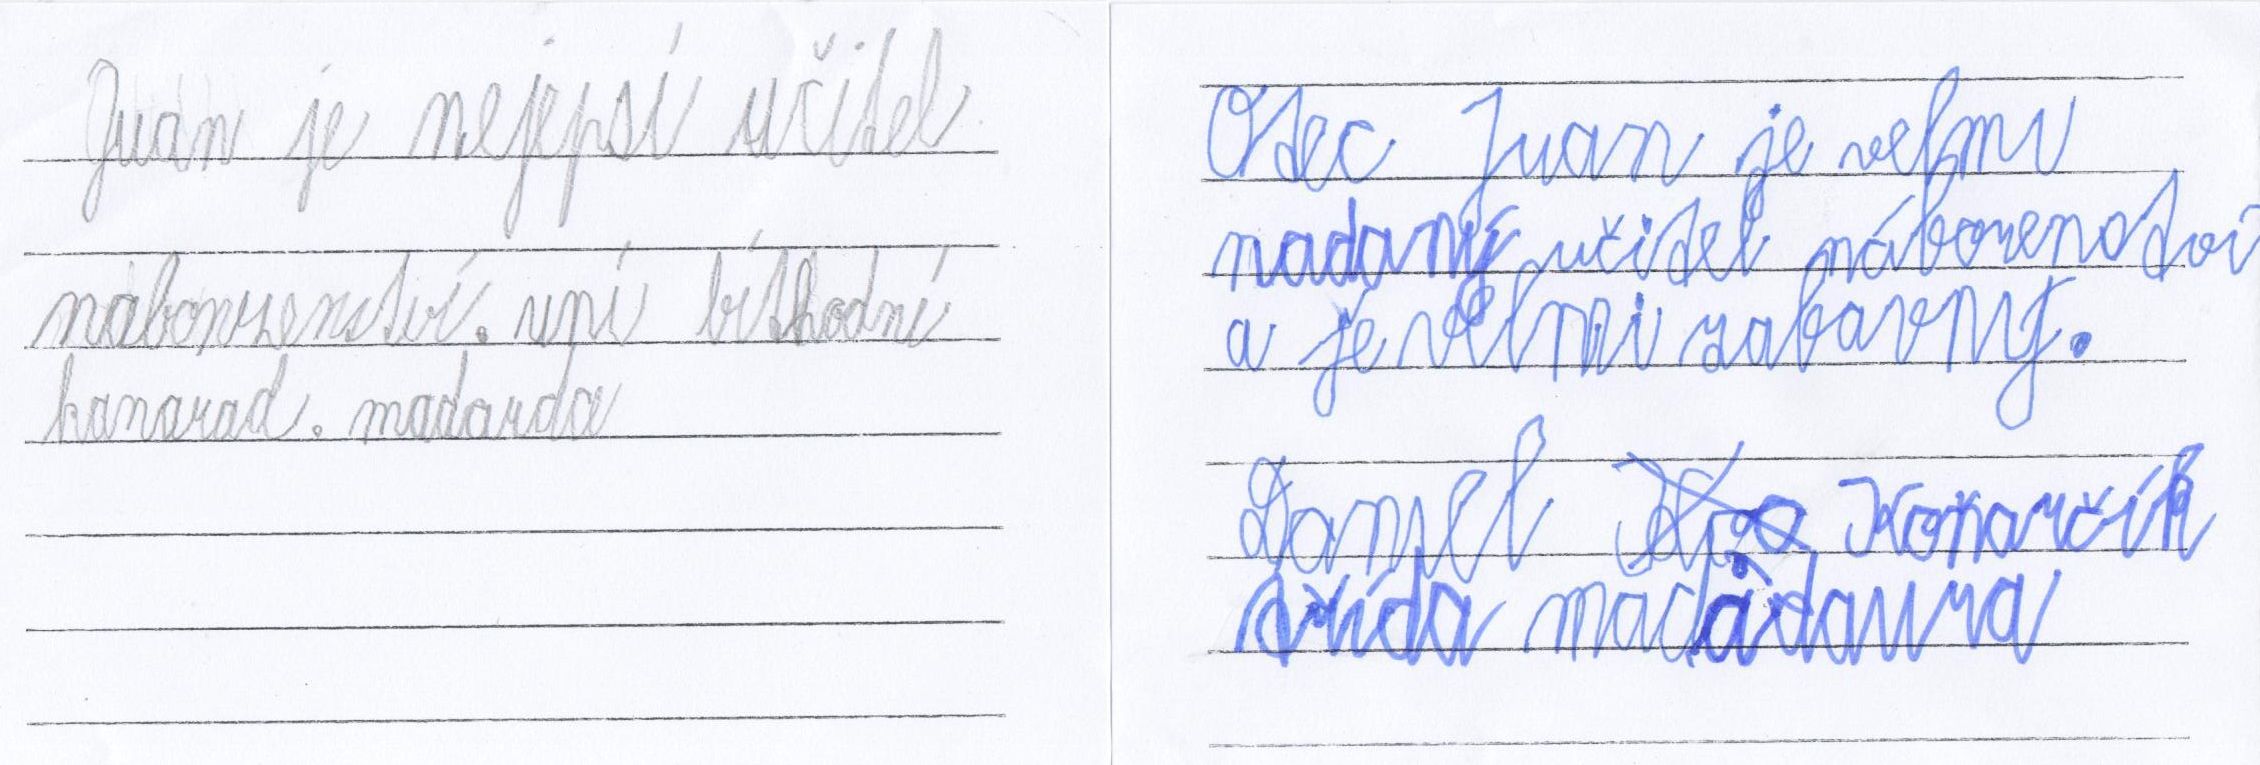 Juan je nejepsí učitel
nabonrzenství. upí
kanarad. madarda
Otec Juan je velmi
nadaný učitel nábozenství
a je velmi zabavný.
Daniel Koňarčík
třída